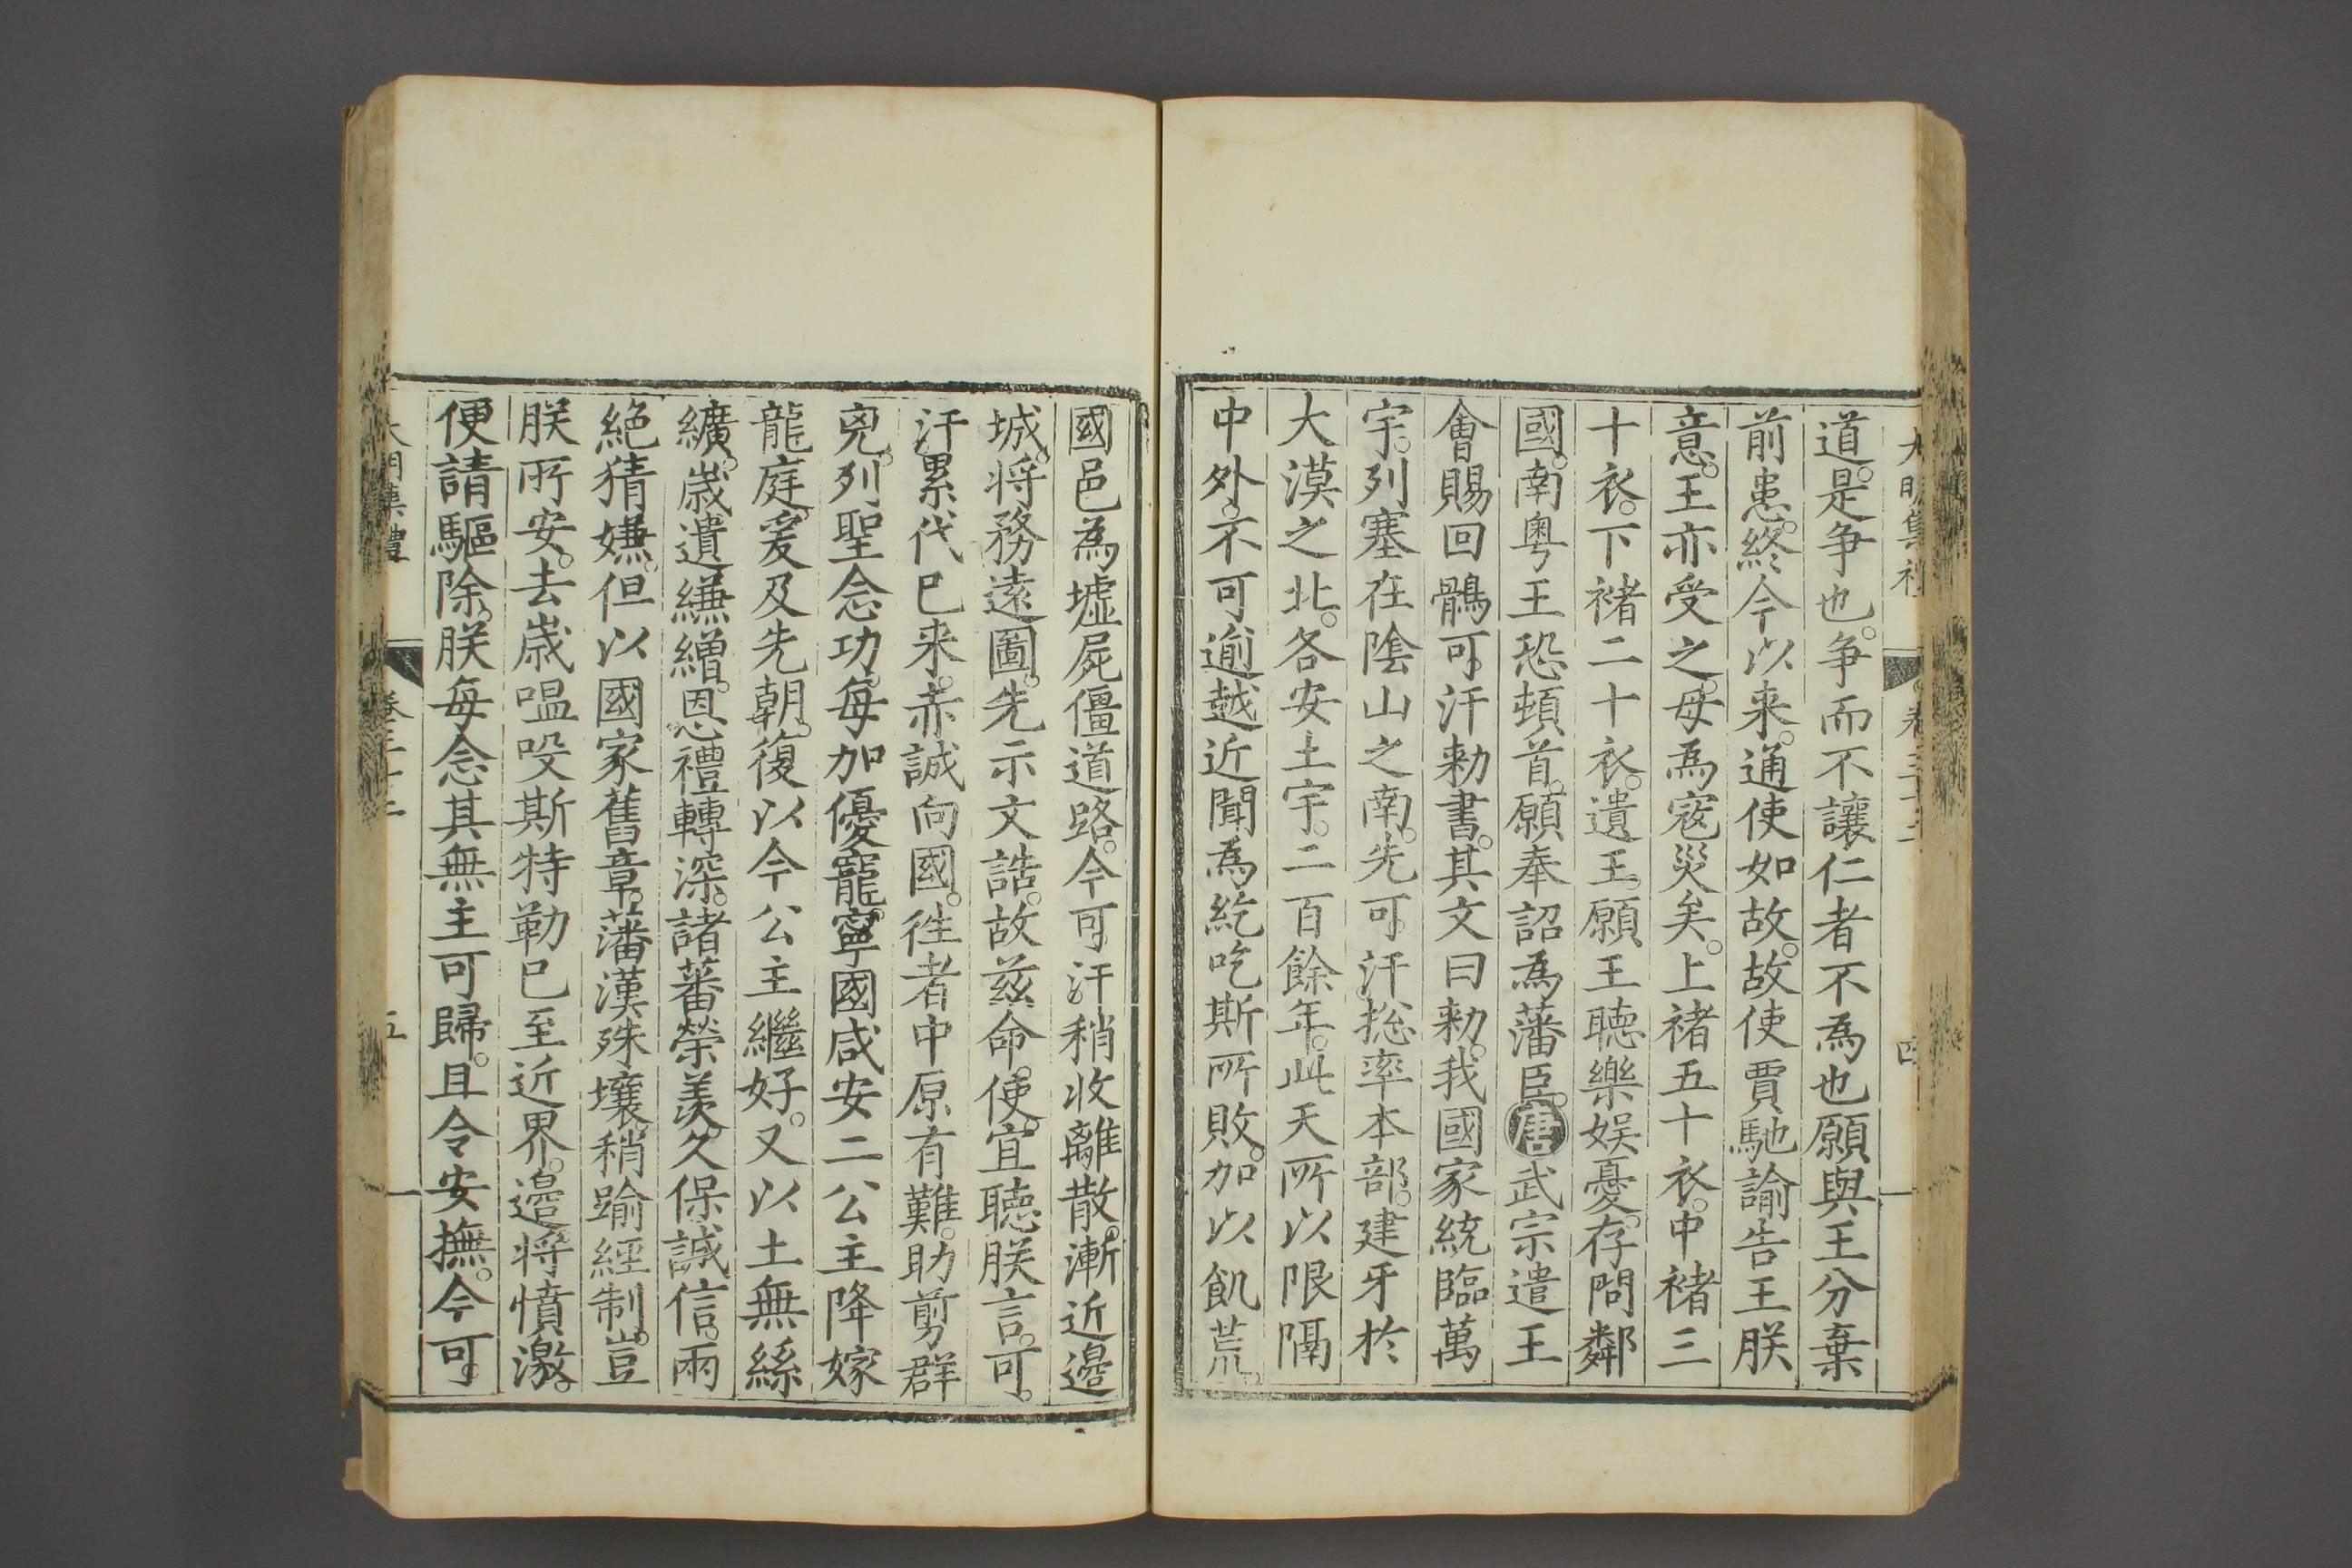 道。是争也。争而不讓仁者不為也願與王分棄
前患。終今以来。通使如故。故使賈馳諭告王朕
意。王亦受之。毋為宼災矣。上褚五十衣。中褚三
十衣。下褚二十衣。遺王。願王聴樂娱憂。存問鄰
國。南粤王恐頓首。願奉詔為藩臣。唐武宗遣王
會賜回鶻可汗勑書。其文曰勑。我國家統臨萬
宇。列塞在陰山之南。先可汗揔率本部。建牙於
大漠之北。各安土宇。二百餘年。此天所以限隔
中外。不可逾越近聞為紇吃斯所敗。加以飢荒。
國邑為墟屍僵道路。今可汗稍收離散。漸近邉
城。将務逺圖。先示文誥。故兹命。使。宜聴朕言。可。
汗累代已来。赤誠向國。徃者中原有難。助剪群
兇。列聖念功。每加優寵。寧國咸安二公主降嫁
龍庭。爰及先朝。復以今公主繼好。又以土無絲
纊。歳遺縑繒。恩禮轉深。諸蕃榮羡。久保誠信。兩
絶猜嫌。但以國家舊章。藩漢殊壤稍踰經制。豈
朕所安。去歳嗢吺斯特勒已至近界。邉将憤激。
便請驅除。朕每念其無主可歸。且令安撫。今可